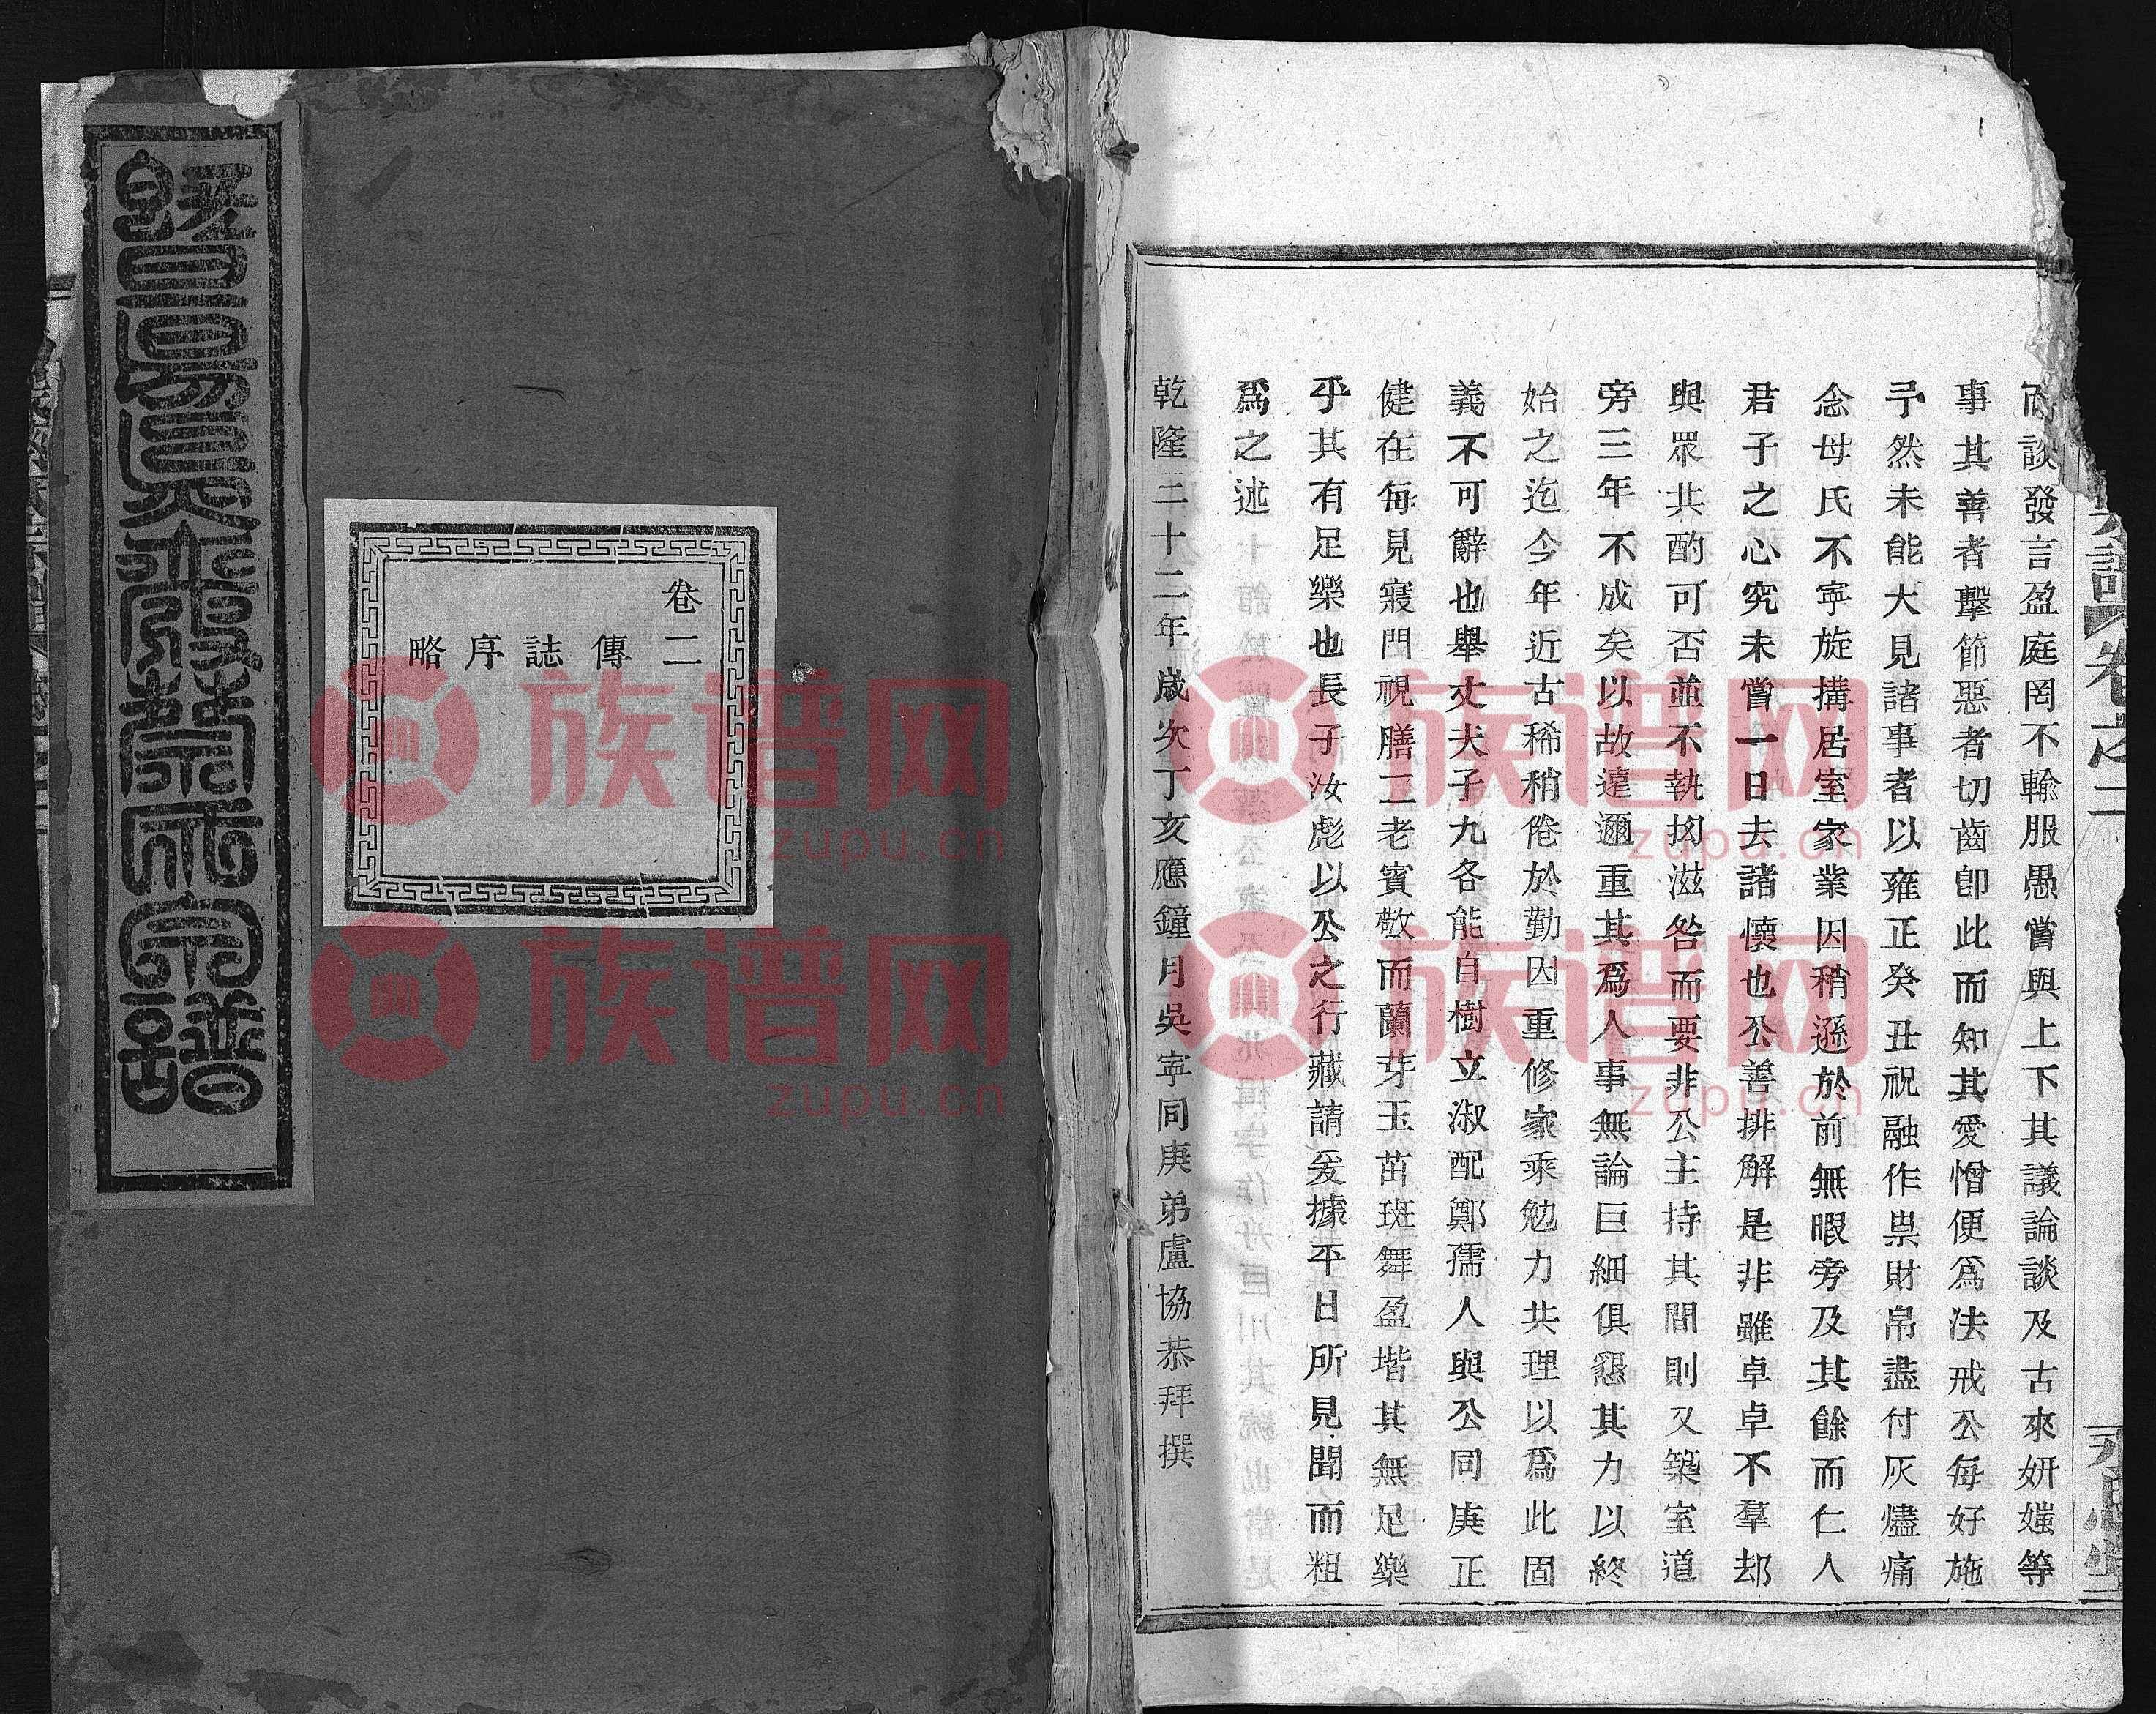 而談發言盈庭罔不輸服愚嘗與上下其議論談及古來妍媸等
事其善者擊節惡者切齒卽此而知其愛憎便爲法戒公每好施
予然未能大見諸事者以雍正癸丑祝融作祟財帛盡付灰燼痛
念母氏不寧旋搆居室家業因稍遜於前無暇旁及其餘而仁人
君子之心究未嘗一日去諸懷也公善排解是非雖卓卓不羣却
與眾共酌可否並不執拗滋咎而要非公主持其間則又築室道
旁三年不成矣以故遠邇重其爲人事無論巨細俱懇其力以終
始之迄今年近古稀稍倦於勤因重修家乘勉力共理以爲此固
義不可辭也舉丈夫子九各能自樹立淑配鄭孺人與公同庚正
健在每見寢門視膳二老賓敬而蘭芽玉茁斑舞盈堦其無足樂
乎其有足樂也長子汝彪以公之行藏請爰據平日所見聞而粗
爲之述
乾隆三十二年歲次丁亥應鐘月吳寧同庚弟盧協恭拜撰
卷之二
卷二
傳誌序略
宗譜
族谱网
zupu.cn
族谱网
zupu.cn
族谱网
zupu.cn
族谱网
zupu.cn